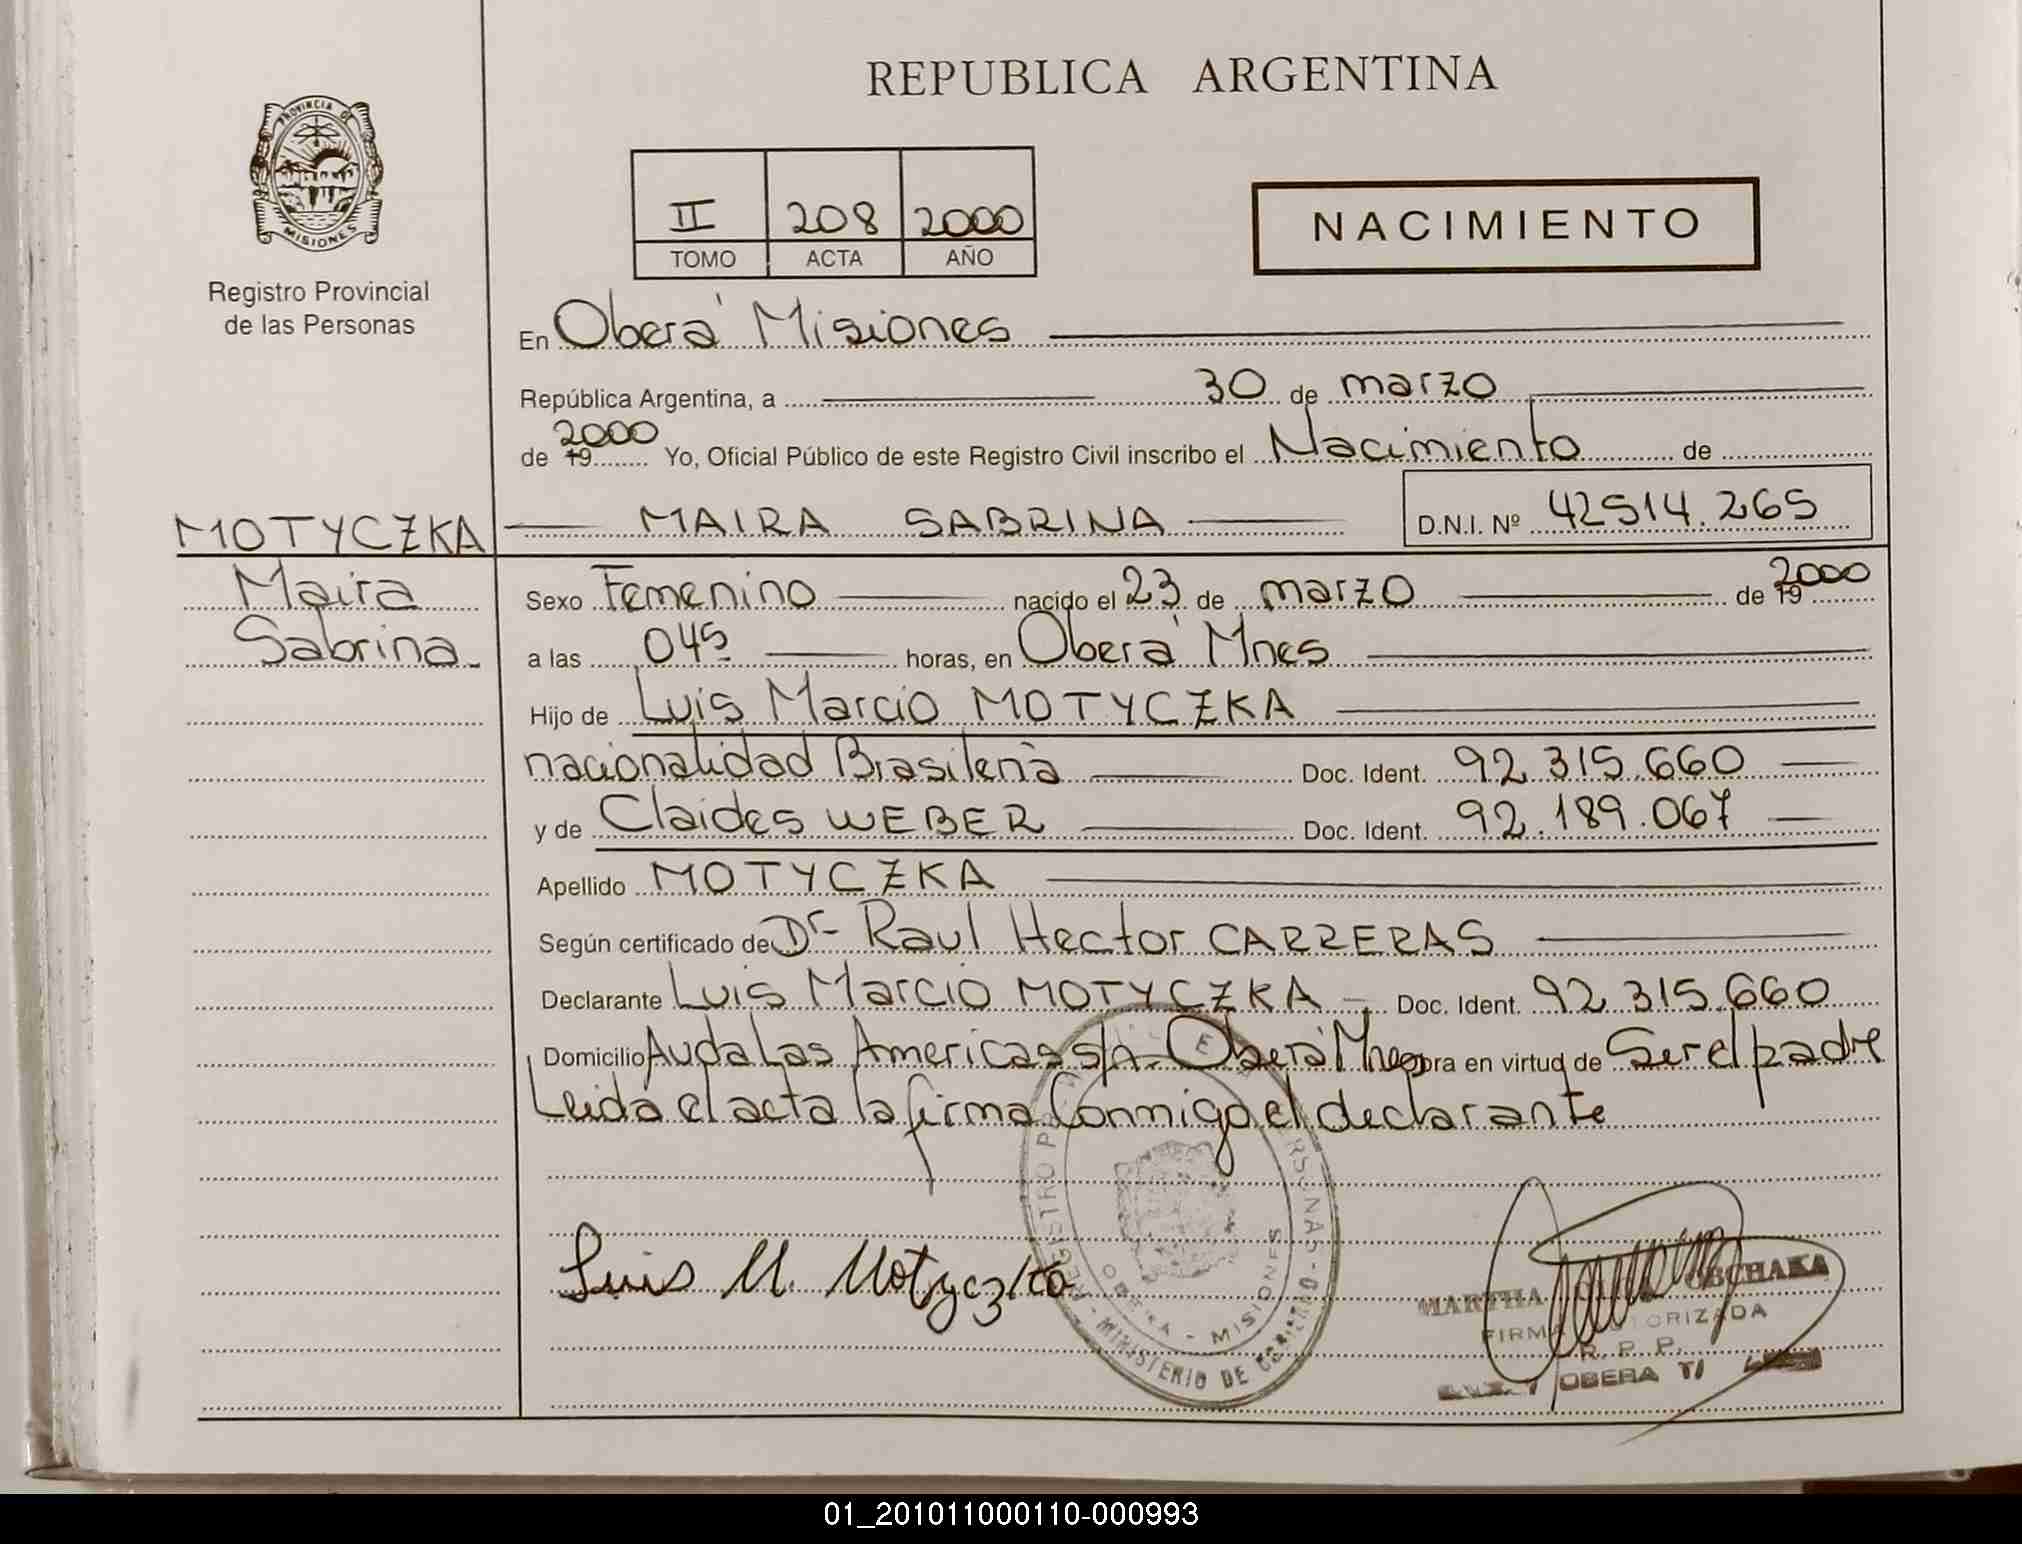 REPUBLICA ARGENTINA
PROVINCIA DE
MISIONES
Registro Provincial
de las Personas
II 208 2000
TOMO ACTA AÑO
NACIMIENTO
En Oberá Misiones
República Argentina, a 30 de marzo
de 19 2000 Yo, Oficial Público de este Registro Civil inscribo el Nacimiento de
MAIRA SABRINA D.N.I. Nº 42514.265
MOTYCZKA
Maira
Sabrina
Sexo Femenino nacido el 23 de marzo de 19 2000
a las 045 horas, en Oberá Mnes
Hijo de Luis Marcio MOTYCZKA
nacionalidad Brasileña Doc. Ident. 92.315.660
y de Claides WEBER Doc. Ident. 92.189.067
Apellido MOTYCZKA
Según certificado de Dr- Raul Hector CARRERAS
Declarante Luis Marcio MOTYCZKA Doc. Ident. 92.315.660
Domicilio Avda Las Americas s/n. Oberá Mnes obra en virtud de Ser el padre
Leida el acta la firma Conmigo el declarante
Luis M. Motyczka
REGISTRO PERSONAS
MINISTERIO DE GOBIERNO
MISIONES
MARTHA OBCHAKA
FIRMA AUTORIZADA
R. P. P.
OBERA
01_201011000110-000993